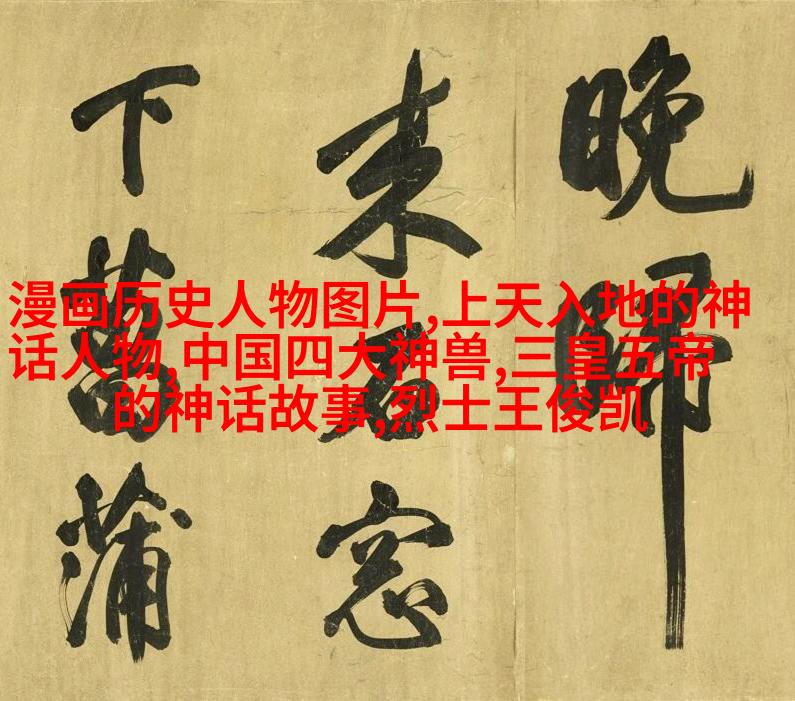 漫画历史人物图片,上天入地的神
话人物,中国四大神兽,三皇五帝
的神话故事,烈士王俊凯
晚歸
来石窓
下菖蒲